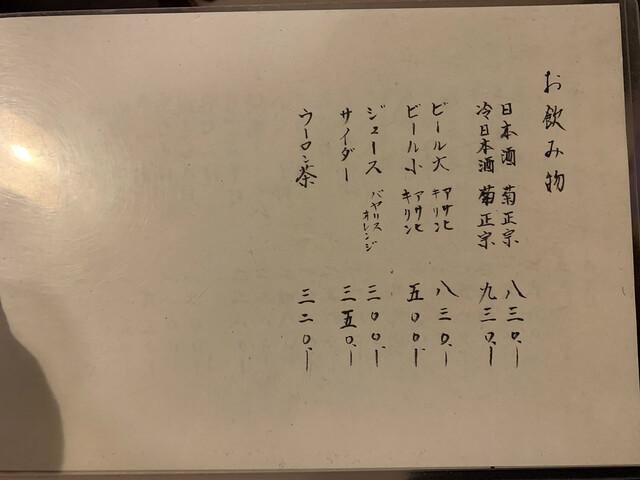 お飲み物
日本酒 菊正宗 八三〇.ー
冷日本酒 菊正宗 九三〇.ー
ビール大 アサヒ キリン 八三〇.ー
ビール小 アサヒ キリン 五〇〇.ー
ジュース バヤリス オレンジ 三〇〇.ー
サイダー 三五〇.ー
ウーロン茶 三二〇.ー